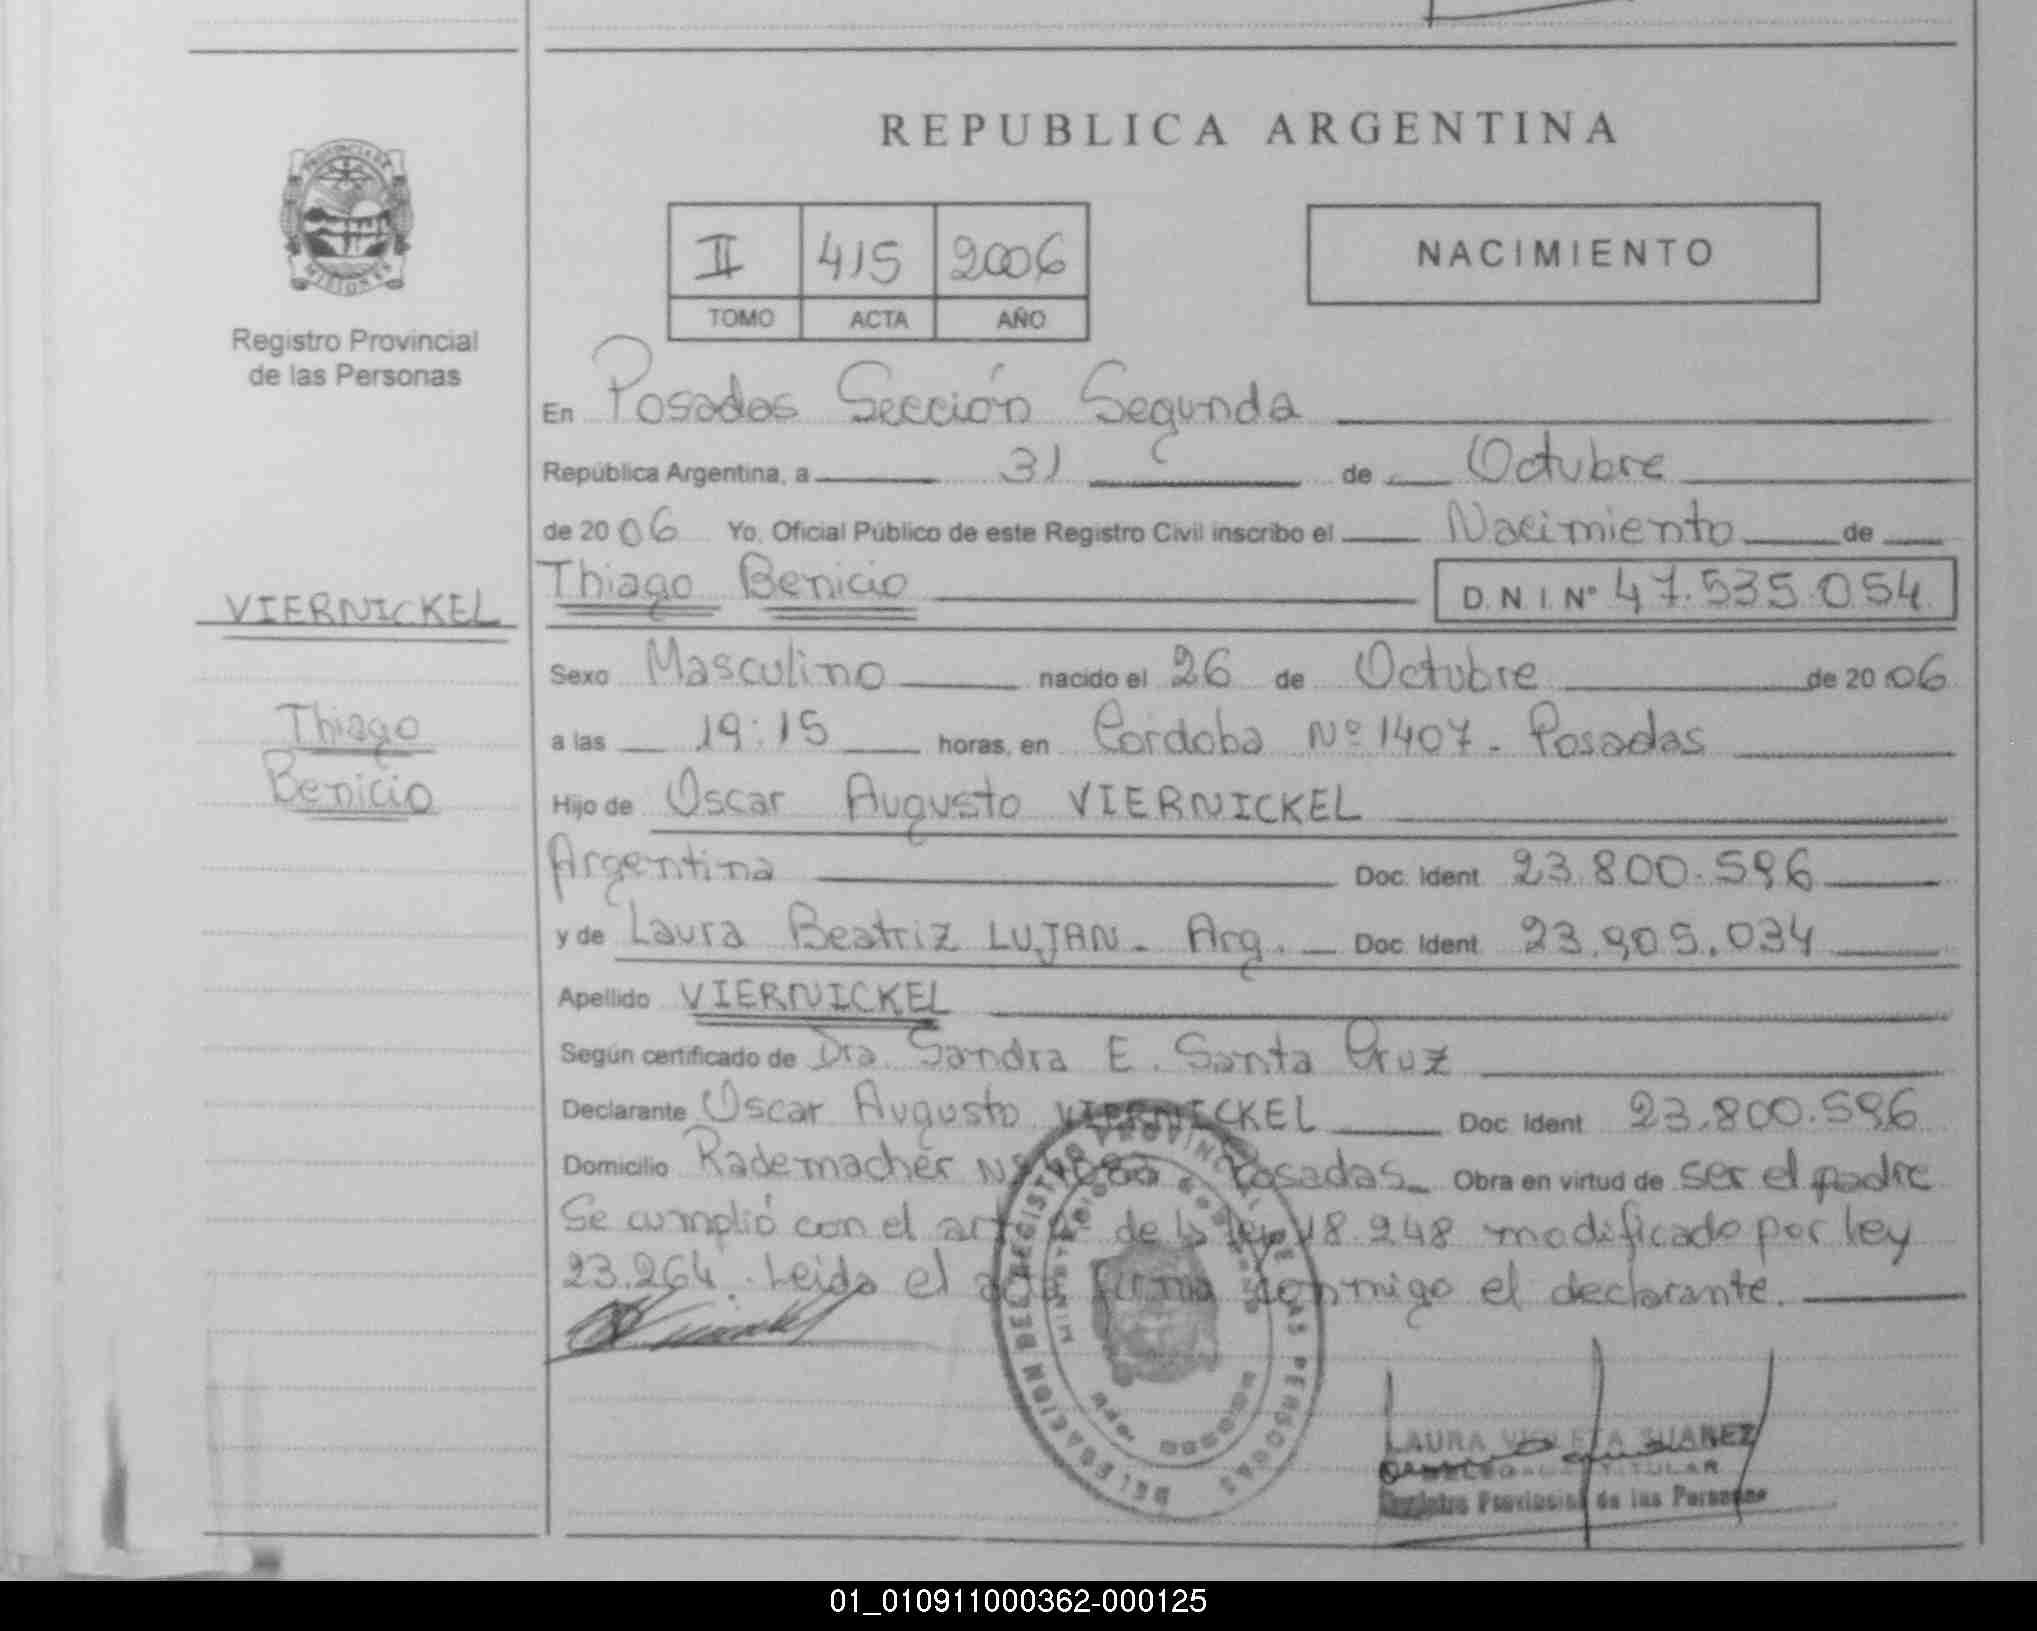 REPUBLICA ARGENTINA
PROVINCIA DE
MISIONES
Registro Provincial
de las Personas
II 415 2006
TOMO ACTA AÑO
NACIMIENTO
En Posadas Sección Segunda
República Argentina, a 31 de Octubre
de 2006 Yo, Oficial Público de este Registro Civil inscribo el Nacimiento de
Thiago Benicio D.N.I. Nº 47.535.054
VIERNICKEL
Thiago
Benicio
Sexo Masculino nacido el 26 de Octubre de 2006
a las 19:15 horas, en Cordoba Nº 1407 - Posadas
Hijo de Oscar Augusto VIERNICKEL
Argentina Doc. Ident. 23.800.596
y de Laura Beatriz LUJAN - Arg. Doc. Ident. 23.905.034
Apellido VIERNICKEL
Según certificado de Dra. Sandra E. Santa Cruz
Declarante Oscar Augusto VIERNICKEL Doc. Ident. 23.800.596
Domicilio Rademacher Nº Posadas - Obra en virtud de ser el padre
Se cumplió con el art de la ley 18.248 modificado por ley
23.264. Leida el acta firma conmigo el declarante.
DELEGACION DEL REGISTRO PROVINCIAL DE LAS PERSONAS
LAURA VIOLETA SUAREZ
TITULAR
Registro Provincial de las Personas
01_010911000362-000125